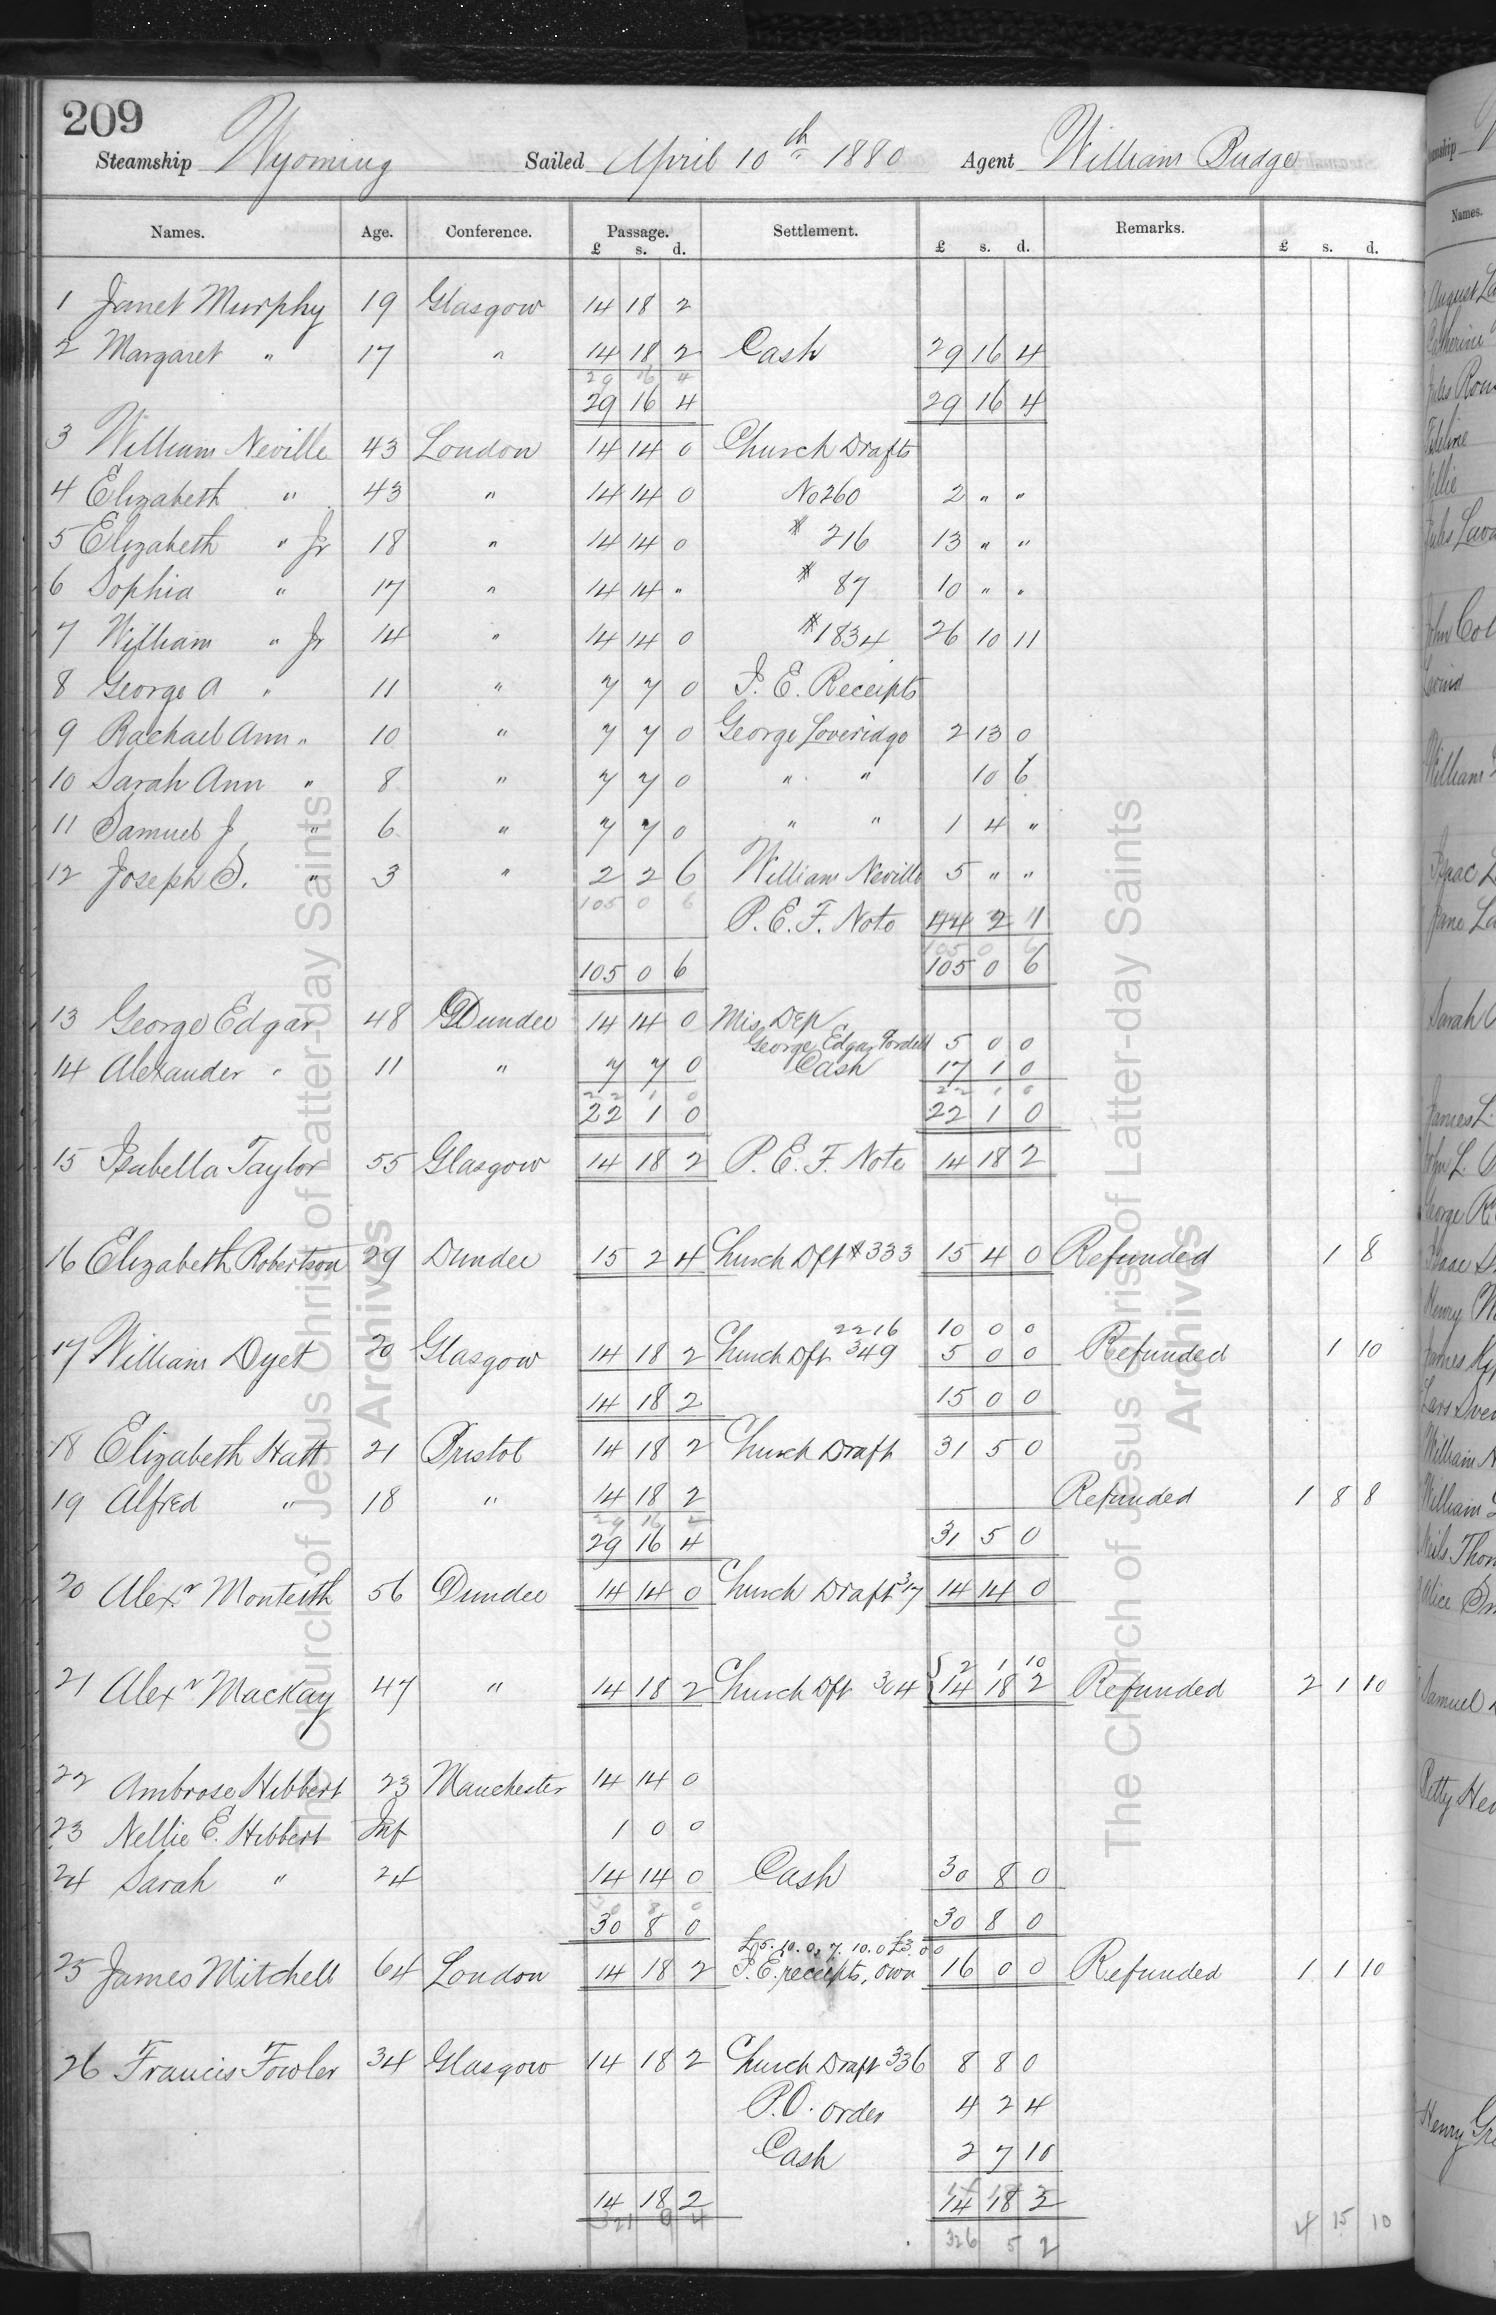 209
Steamship Wyoming Sailed April 10th 1880 Agent William Budge
Names. Age. Conference. Passage. £ s. d. Settlement. £ s. d. Remarks. £ s. d.
1 Janet Murphy 19 Glasgow 14 18 2
2 Margaret " 17 " 14 18 2 Cash 29 16 4
29 16 4
29 16 4 29 16 4
3 William Neville 43 London 14 14 0 Church Drafts
4 Elizabeth " 43 " 14 14 0 No 260 2 " "
5 Elizabeth " Jr 18 " 14 14 0 # 216 13 " "
6 Sophia " 17 " 14 14 " # 87 10 " "
7 William " Jr 14 " 14 14 0 # 1834 26 10 11
8 George A " 11 " 7 7 0 I. E. Receipts
9 Rachael Ann " 10 " 7 7 0 George Loveridge 2 13 0
10 Sarah Ann " 8 " 7 7 0 " " 10 6
11 Samuel J " 6 " 7 7 0 " " 1 4 "
12 Joseph S. " 3 " 2 2 6 William Neville 5 " "
105 0 6 P. E. F. Note 44 2 1
105 0 6
105 0 6 105 0 6
13 George Edgar 48 Dundee 14 14 0 Mis Dep
George Edgar 5 0 0
14 Alexander " 11 " 7 7 0 Cash 17 1 0
22 1 0 22 1 0
22 1 0 22 1 0
15 Isabella Taylor 55 Glasgow 14 18 2 P. E. F. Note 14 18 2
16 Elizabeth Robertson 29 Dundee 15 2 4 Church Dft # 333 15 4 0 Refunded 1 8
2216 10 0 0
17 William Dyet 20 Glasgow 14 18 2 Church Dft 349 5 0 0 Refunded 1 10
14 18 2 15 0 0
18 Elizabeth Hatt 21 Bristol 14 18 2 Church Draft 31 5 0
19 Alfred " 18 " 14 18 2 Refunded 1 8 8
29 16 4 31 5 0
20 Alexr Monteith 56 Dundee 14 14 0 Church Draft 317 14 14 0
2 1 10
21 Alexr Mackay 47 " 14 18 2 Church Dft 304 14 18 2 Refunded 2 1 10
22 Ambrose Hibbert 23 Manchester 14 14 0
23 Nellie E. Hibbert Inf 1 0 0
24 Sarah " 24 14 14 0 Cash 30 8 0
30 8 0
30 8 0 30 8 0
£5. 10. 0, 7. 10. 0 £3. 0 0
25 James Mitchell 64 London 14 18 2 I. E. receipts, own 16 0 0 Refunded 1 1 10
26 Francis Fowler 34 Glasgow 14 18 2 Church Draft 336 8 8 0
P.O. order 4 2 4
Cash 2 7 10
14 18 2 14 18 2
321 9 4 326 5 2 4 15 10
The Church of Jesus Christ of Latter-day Saints
Archives
The Church of Jesus Christ of Latter-day Saints
Archives
Names.